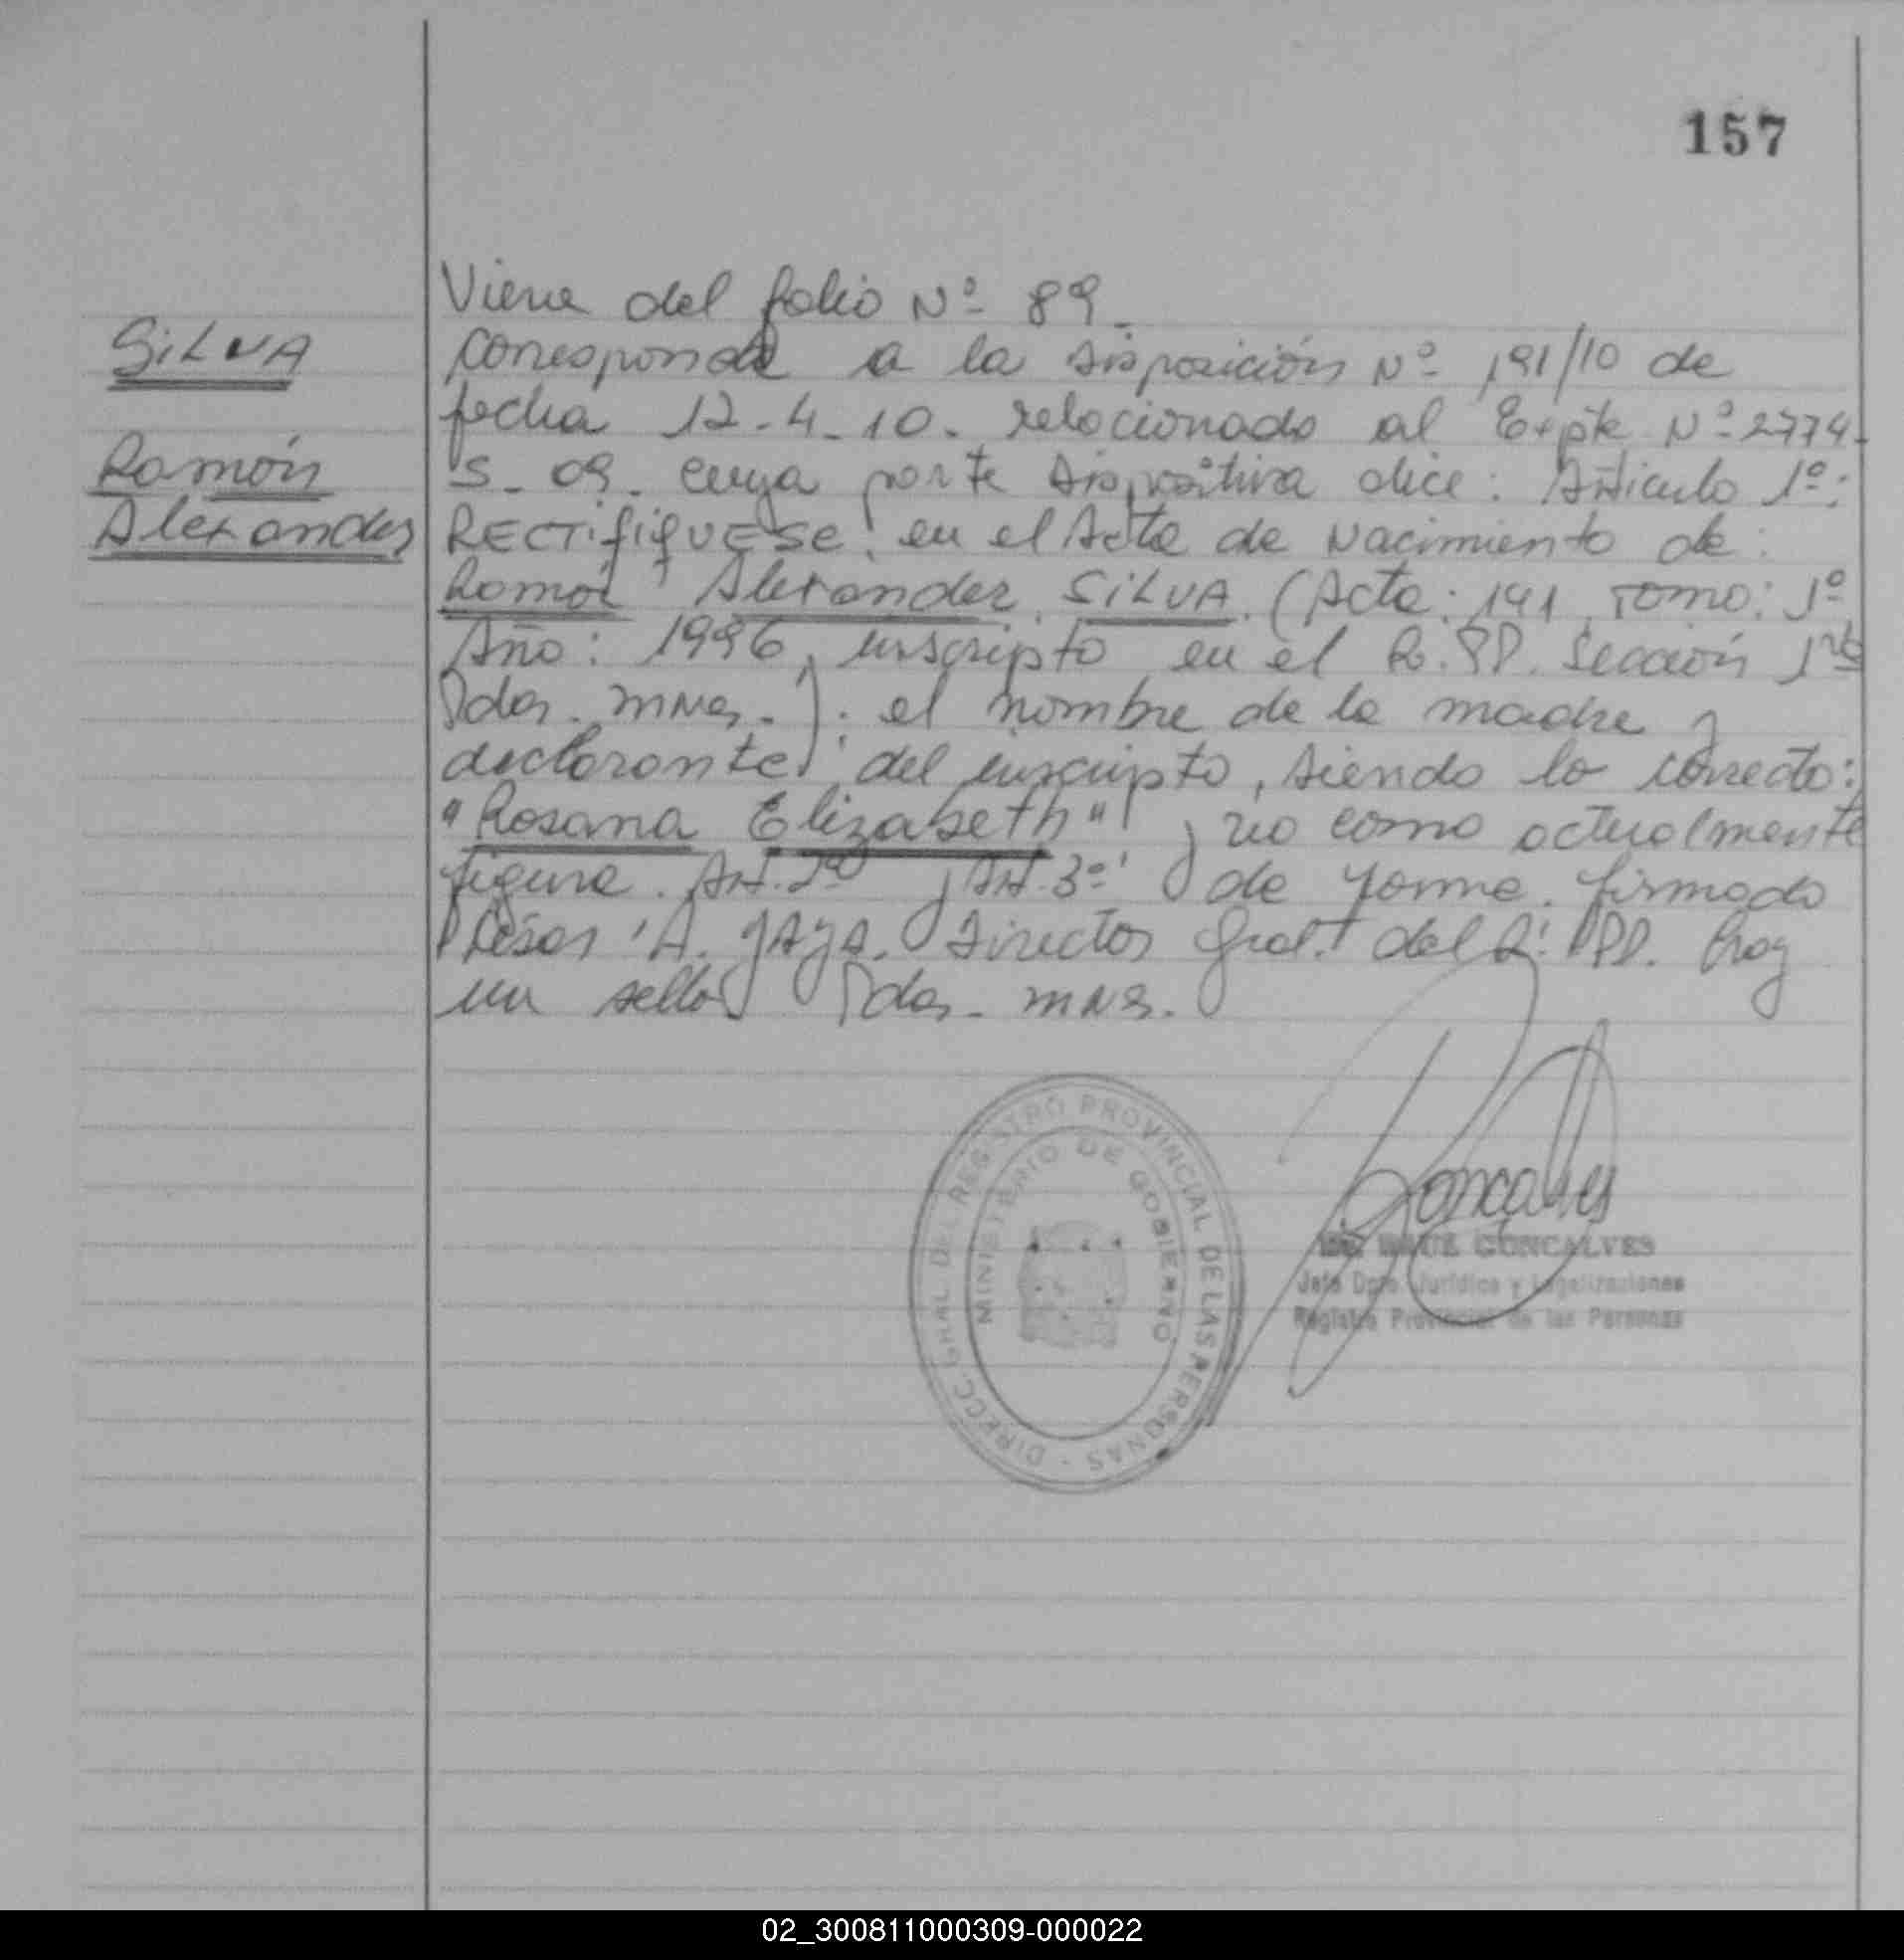 157
Viene del folio Nº 89_
SILVA
Corresponde a la Disposición Nº 191/10 de
fecha 12-4-10. relacionado al Expte Nº 2774-
Ramón
S-09. cuya parte dispositiva dice: Artículo 1º:
Alexander
RECTIFIQUESE: en el Acta de Nacimiento de:
Ramón Alexander SILVA. (Acta: 141, Tomo: 1º
Año: 1996, inscripto en el R.PP. Sección 1ra
Pdas. Mnes.): el nombre de la madre y
declarante del inscripto, siendo lo correcto:
"Rosana Elizabeth" y no como actualmente
figura. Art. 2º y Art. 3º de forma. firmado
César A. Director Gral. del R. PP. hay
un sello Pdas. Mnes.
DIRECC. GRAL. DEL REGISTRO PROVINCIAL DE LAS PERSONAS -
MINISTERIO DE GOBIERNO
Goncalves
RAUL GONCALVES
Jefe Dpto. Jurídico y Legalizaciones
Registro Provincial de las Personas
02_300811000309-000022